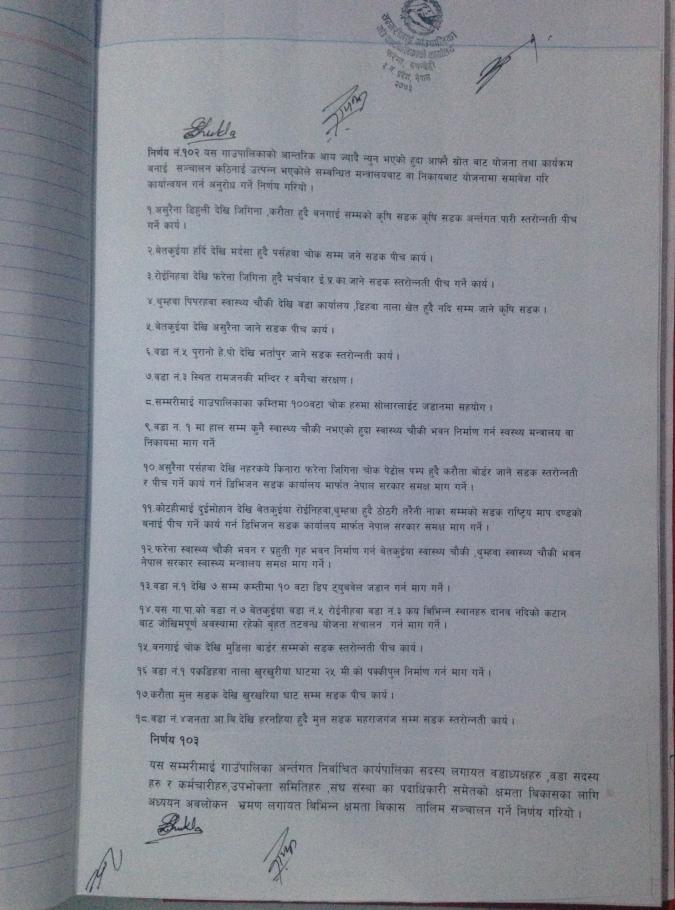 सम्मरीमाई गाउँपालिका
गाउँ कार्यपालिकाको कार्यालय
फरेना, रुपन्देही
२०७३
Shukla
निर्णय नं.१०२ यस गाउपालिकाको आन्तरिक आय ज्यादै न्युन भएको हुदा आफ्नै स्रोत बाट योजना तथा कार्यक्रम
बनाई सञ्चालन कठिनाई उत्पन्न भएकोले सम्बन्धित मन्त्रालयबाट वा निकायबाट योजनामा समावेश गरि
कार्यान्वयन गर्न अनुरोध गर्ने निर्णय गरियो ।
१.असुरैना डिहुली देखि जिगिना ,करौता हुदै बनगाई सम्मको कृषि सडक कृषि सडक अर्न्तगत पारी स्तरोन्नती पीच
गर्ने कार्य ।
२.बेतकुईया हर्दि देखि मर्दसा हुदै पर्सहवा चोक सम्म जने सडक पीच कार्य ।
३.रोईनिहवा देखि फरेना जिगिना हुदै मर्चवार ई.प्र.का.जाने सडक स्तरोन्नती पीच गर्ने कार्य ।
४.थुम्हवा पिपरहवा स्वास्थ्य चौकी देखि वडा कार्यालय ,डिहवा नाला खेत हुदै नदि सम्म जाने कृषि सडक ।
५.बेतकुईया देखि असुरैना जाने सडक पीच कार्य ।
६.वडा नं.५ पुरानो हे.पो देखि भर्तापुर जाने सडक स्तरोन्नती कार्य ।
७.वडा नं.३ स्थित रामजनकी मन्दिर र बगैचा संरक्षण ।
८.सम्मरीमाई गाउपालिकाका कम्तिमा १००वटा चोक हरुमा सोलारलाईट जडानमा सहयोग ।
९.वडा नं. १ मा हाल सम्म कुनै स्वास्थ्य चौकी नभएको हुदा स्वास्थ्य चौकी भवन निर्माण गर्न स्वस्थ्य मन्त्रालय वा
निकायमा माग गर्ने
१०.असुरैना पर्सहवा देखि नहरकये किनारा फरेना जिगिना चोक पेट्रोल पम्प हुदै करौता बोर्डर जाने सडक स्तरोन्नती
र पीच गर्ने कार्य गर्न डिभिजन सडक कार्यालय मार्फत नेपाल सरकार समक्ष माग गर्ने ।
११.कोटहीमाई दुईमोहान देखि बेतकुईया रोईनिहवा,थुम्हवा हुदै ठोठरी तरैनी नाका सम्मको सडक राष्ट्रिय माप दण्डको
बनाई पीच गर्ने कार्य गर्न डिभिजन सडक कार्यालय मार्फत नेपाल सरकार समक्ष माग गर्ने ।
१२.फरेना स्वास्थ्य चौकी भवन र प्रहुती गृह भवन निर्माण गर्न बेतकुईया स्वास्थ्य चौकी ,थुम्हवा स्वास्थ्य चौकी भवन
नेपाल सरकार स्वास्थ्य मन्त्रालय समक्ष माग गर्ने ।
१३.वडा नं.१ देखि ७ सम्म कम्तीमा १० वटा डिप ट्युबवेल जडान गर्न माग गर्ने ।
१४.यस गा.पा.को वडा नं.७ बेतकुईया वडा नं.५ रोईनीहवा वडा नं.३ कय बिभिन्न स्थानहरु दानव नदिको कटान
बाट जोखिमपूर्ण अवस्थामा रहेको बृहत तटबन्ध योजना संचालन गर्न माग गर्ने ।
१५.बनगाई चोक देखि मुडिला बार्डर सम्मको सडक स्तरोन्नती पीच कार्य ।
१६ वडा नं.१ पकडिहवा नाला खुरखुरीया घाटमा २५ मी.को पक्कीपुल निर्माण गर्न माग गर्ने ।
१७.करौता मुल सडक देखि खुरखरिया घाट सम्म सडक पीच कार्य ।
१८.वडा नं.४जनता आ.बि देखि हरनहिया हुदै मुल सडक महराजगंज सम्म सडक स्तरोन्नती कार्य ।
निर्णय १०३
यस सम्मरीमाई गाउंपालिका अर्न्तगत निर्वाचित कार्यपालिका सदस्य लगायत वडाध्यक्षहरु ,वडा सदस्य
हरु र कर्मचारीहरु,उपभोक्ता समितिहरु ,संघ संस्था का पदाधिकारी समेतको क्षमता बिकासका लागि
अध्ययन अवलोकन भ्रमण लगायत बिभिन्न क्षमता बिकास तालिम सञ्चालन गर्ने निर्णय गरियो ।
Shukla